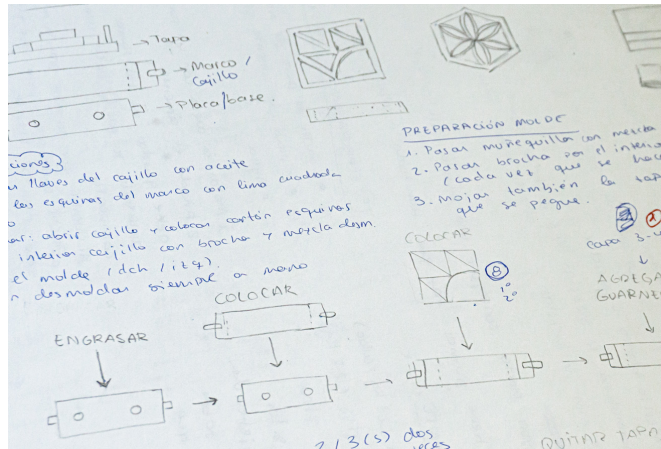 → Tapa
→ Marco/
Cajillo
→ Placa/base.
ciones
llaves del cajillo con aceite
las esquinas del marco con lima cuadrada
abrir cajillo y colocar cartón esquinas
interior cajillo con brocha y mezcla desm.
el molde (dch/izq).
desmoldar siempre a mano
PREPARACIÓN MOLDE
1. Pasar muñequilla con mezcla
2. Pasar brocha por el interio
(cada vez que se hac
3. Mojar también la tap
que se pegue.
COLOCAR
8
1º
2º
2
capa 3-4
↓
AGREGA
GUARNE
ENGRASAR
COLOCAR
2/3(s) dos
QUITAR TAPA